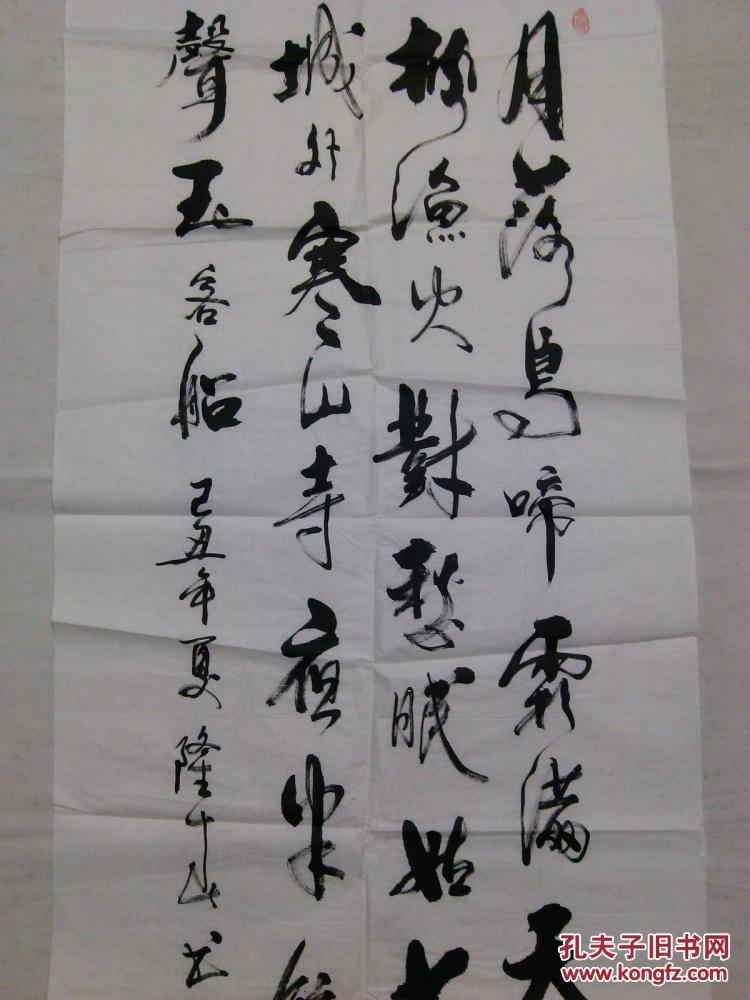 月落烏啼霜滿天
楓漁火對愁眠姑
城外寒山寺夜半
聲玉客船 己丑年夏 隆 书
孔夫子旧书网
www.kongfz.com